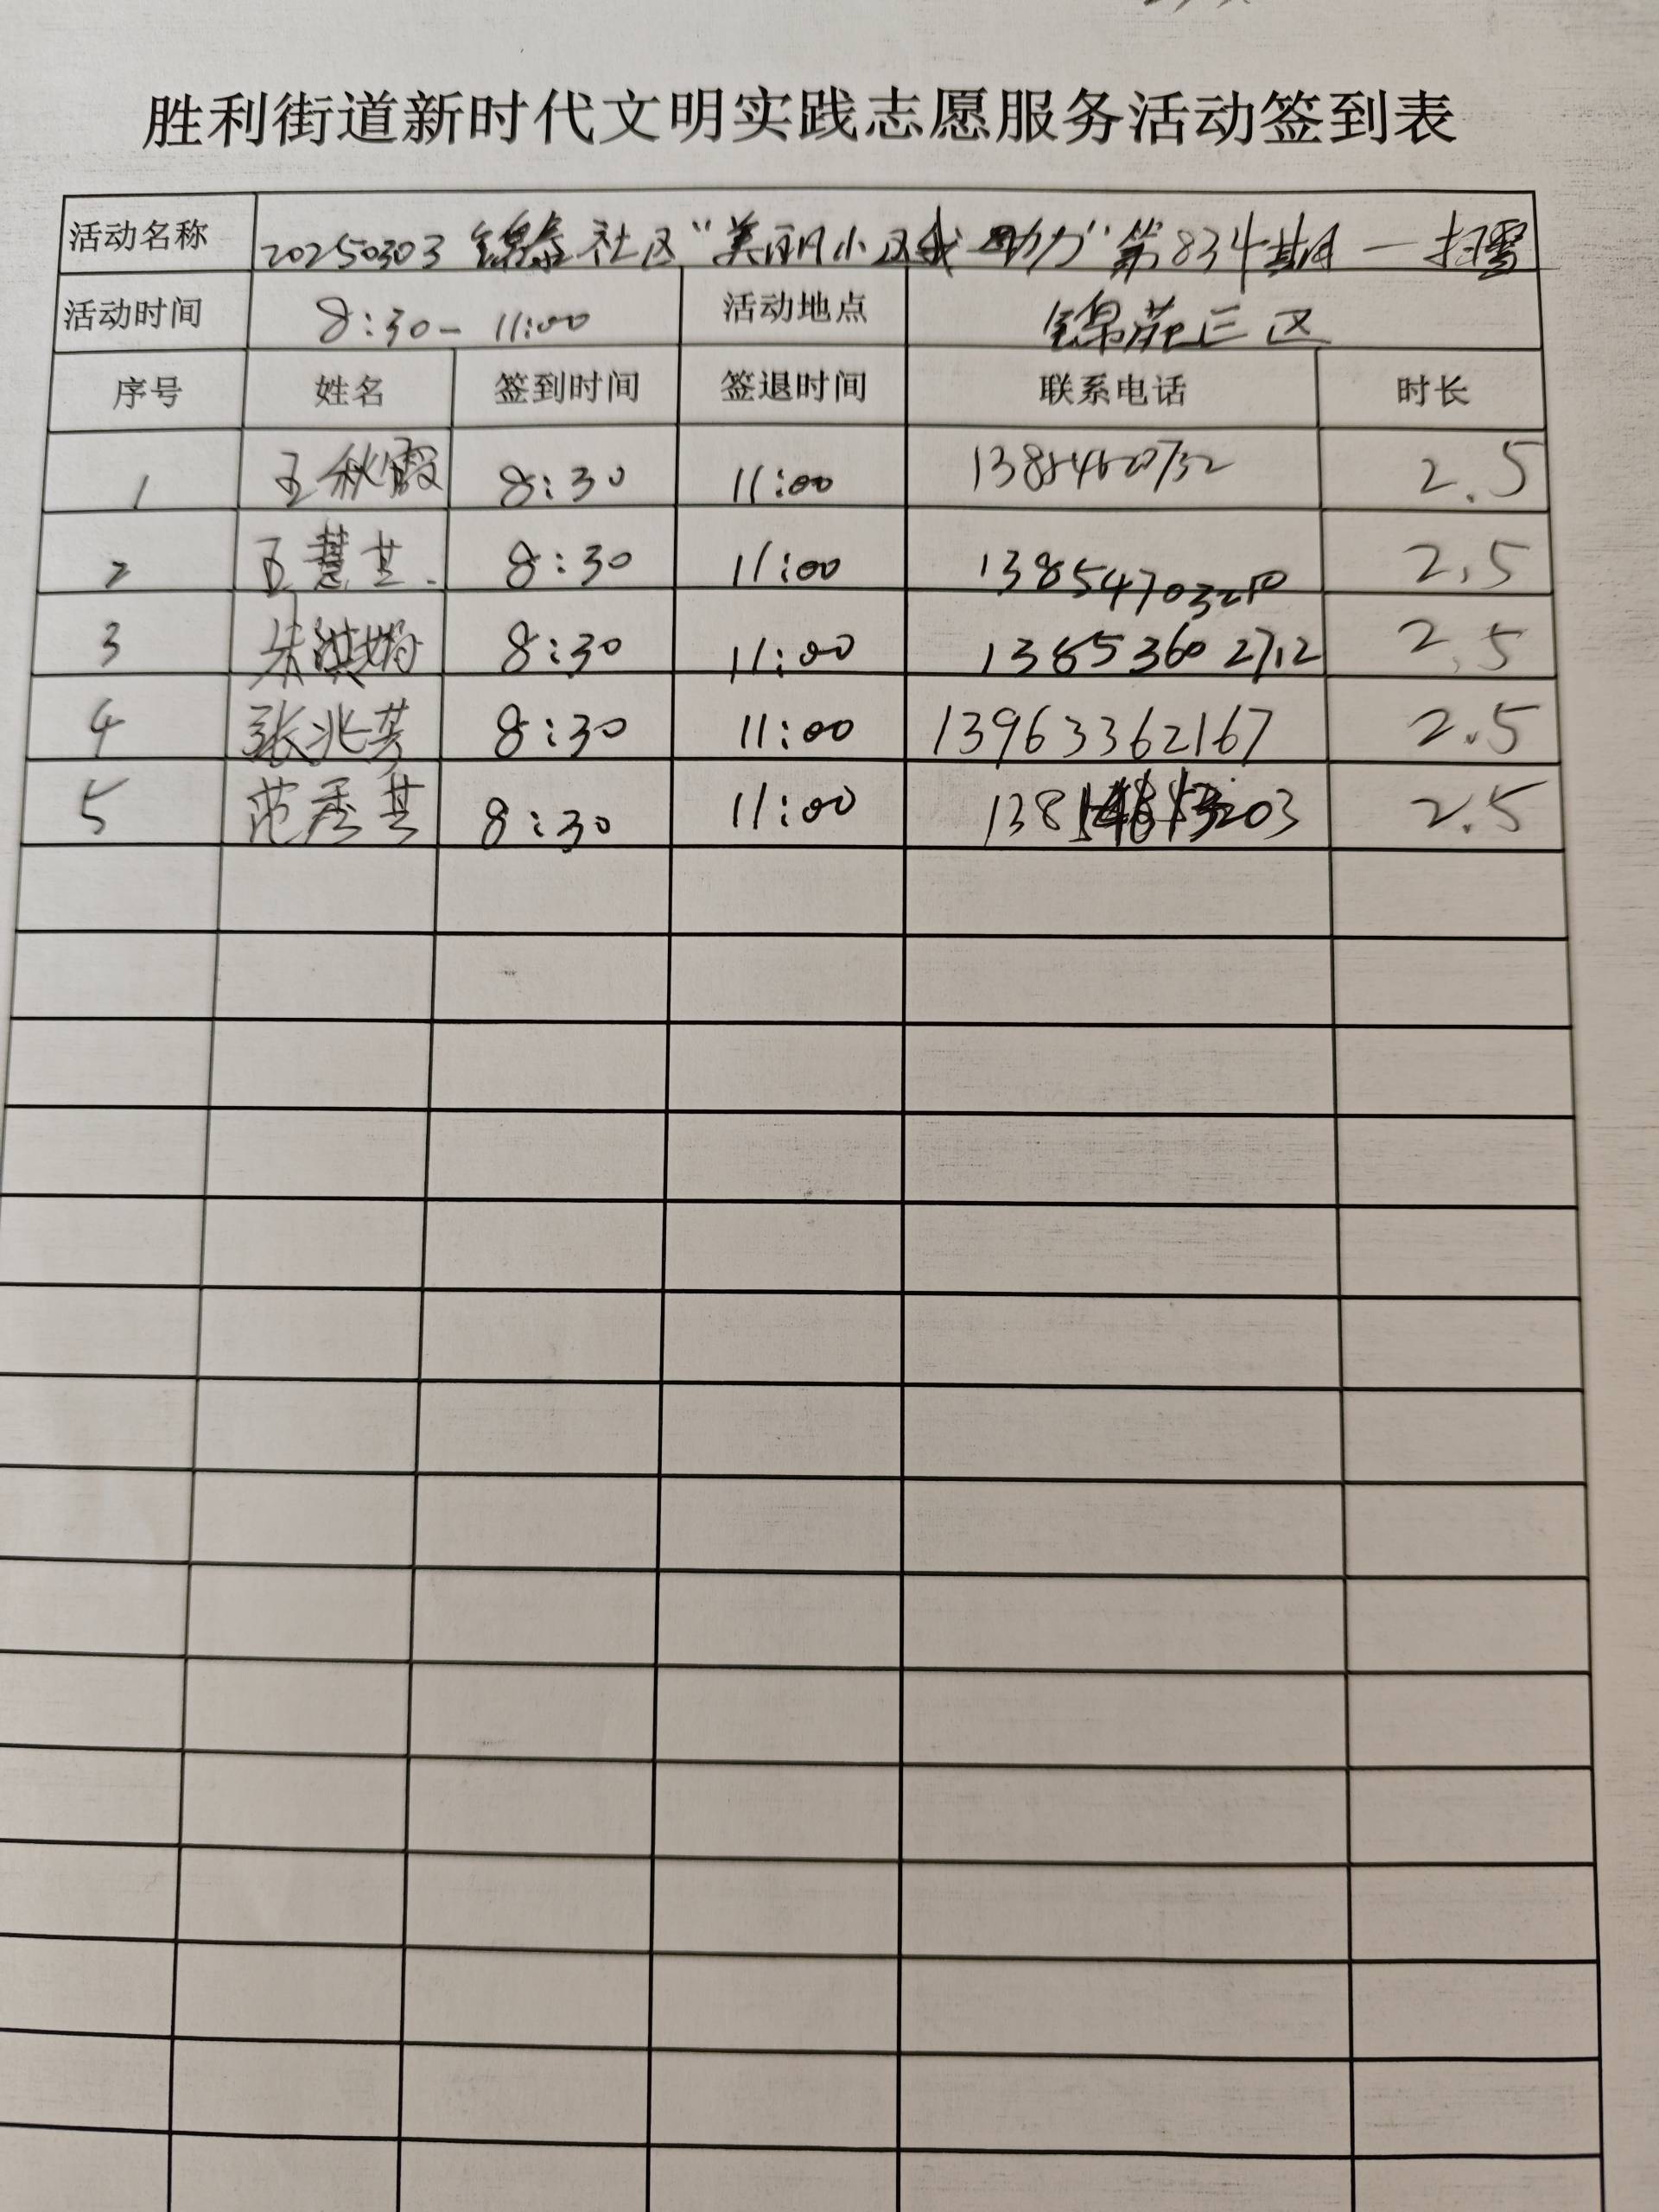 胜利街道新时代文明实践志愿服务活动签到表
活动名称 20250303 锦泰社区"美丽小区我助力"第834期一扫雪
活动时间 8:30-11:00 活动地点 锦苑三区
序号 姓名 签到时间 签退时间 联系电话 时长
1 王秋霞 8:30 11:00 2.5
2 王慧芝 8:30 11:00 2.5
3 朱洪娟 8:30 11:00 13853602712 2.5
4 张兆芳 8:30 11:00 13963362167 2.5
5 范秀芝 8:30 11:00 2.5